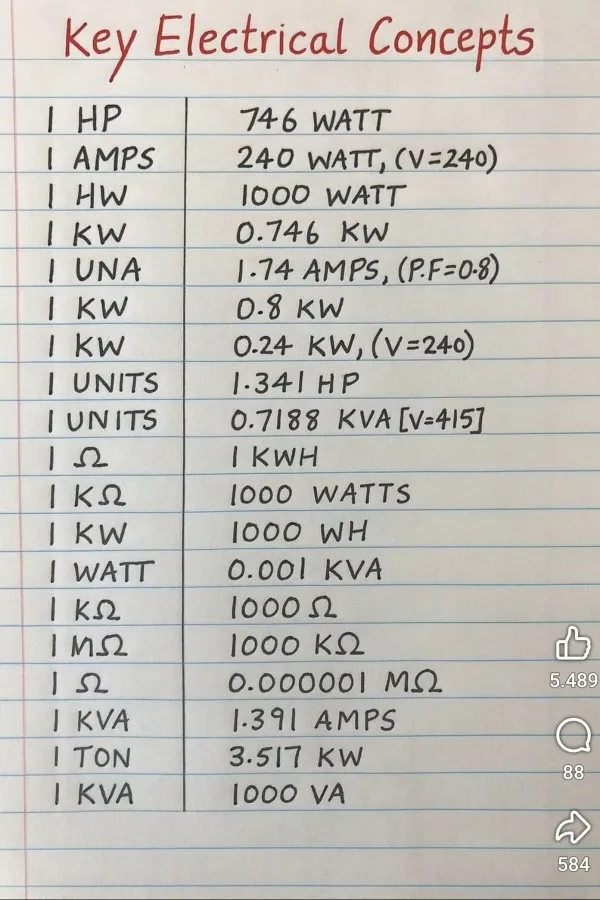 Key Electrical Concepts
1 HP 746 WATT
1 AMPS 240 WATT, (V=240)
1 HW 1000 WATT
1 KW 0.746 KW
1 UNA 1.74 AMPS, (P.F=0.8)
1 KW 0.8 KW
1 KW 0.24 KW, (V=240)
1 UNITS 1.341 HP
1 UNITS 0.7188 KVA [V=415]
1 Ω 1 KWH
1 KΩ 1000 WATTS
1 KW 1000 WH
1 WATT 0.001 KVA
1 KΩ 1000 Ω
1 MΩ 1000 KΩ
1 Ω 0.000001 MΩ
1 KVA 1.391 AMPS
1 TON 3.517 KW
1 KVA 1000 VA
5.489
88
584